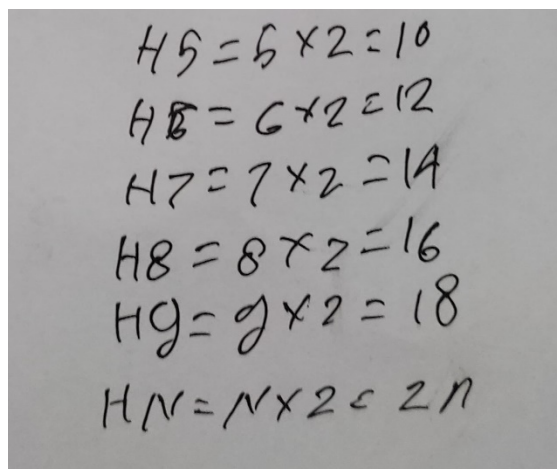 H5=5×2=10
H6=6×2=12
H7=7×2=14
H8=8×2=16
H9=9×2=18
HN=N×2=2n